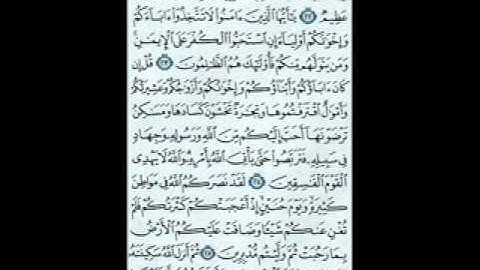 عَظِيمٌ ٢٢ يَٰٓأَيُّهَا ٱلَّذِينَ ءَامَنُوا۟ لَا تَتَّخِذُوٓا۟ ءَابَآءَكُمْ
وَإِخْوَٰنَكُمْ أَوْلِيَآءَ إِنِ ٱسْتَحَبُّوا۟ ٱلْكُفْرَ عَلَى ٱلْإِيمَٰنِ
وَمَن يَتَوَلَّهُم مِّنكُمْ فَأُو۟لَٰٓئِكَ هُمُ ٱلظَّٰلِمُونَ ٢٣ قُلْ إِن
كَانَ ءَابَآؤُكُمْ وَأَبْنَآؤُكُمْ وَإِخْوَٰنُكُمْ وَأَزْوَٰجُكُمْ وَعَشِيرَتُكُمْ
وَأَمْوَٰلٌ ٱقْتَرَفْتُمُوهَا وَتِجَٰرَةٌ تَخْشَوْنَ كَسَادَهَا وَمَسَٰكِنُ
تَرْضَوْنَهَآ أَحَبَّ إِلَيْكُم مِّنَ ٱللَّهِ وَرَسُولِهِۦ وَجِهَادٍ
فِى سَبِيلِهِۦ فَتَرَبَّصُوا۟ حَتَّىٰ يَأْتِىَ ٱللَّهُ بِأَمْرِهِۦ وَٱللَّهُ لَا يَهْدِى
ٱلْقَوْمَ ٱلْفَٰسِقِينَ ٢٤ لَقَدْ نَصَرَكُمُ ٱللَّهُ فِى مَوَاطِنَ
كَثِيرَةٍ وَيَوْمَ حُنَيْنٍ إِذْ أَعْجَبَتْكُمْ كَثْرَتُكُمْ فَلَمْ
تُغْنِ عَنكُمْ شَيْـًٔا وَضَاقَتْ عَلَيْكُمُ ٱلْأَرْضُ
بِمَا رَحُبَتْ ثُمَّ وَلَّيْتُم مُّدْبِرِينَ ٢٥ ثُمَّ أَنزَلَ ٱللَّهُ سَكِينَتَهُۥ